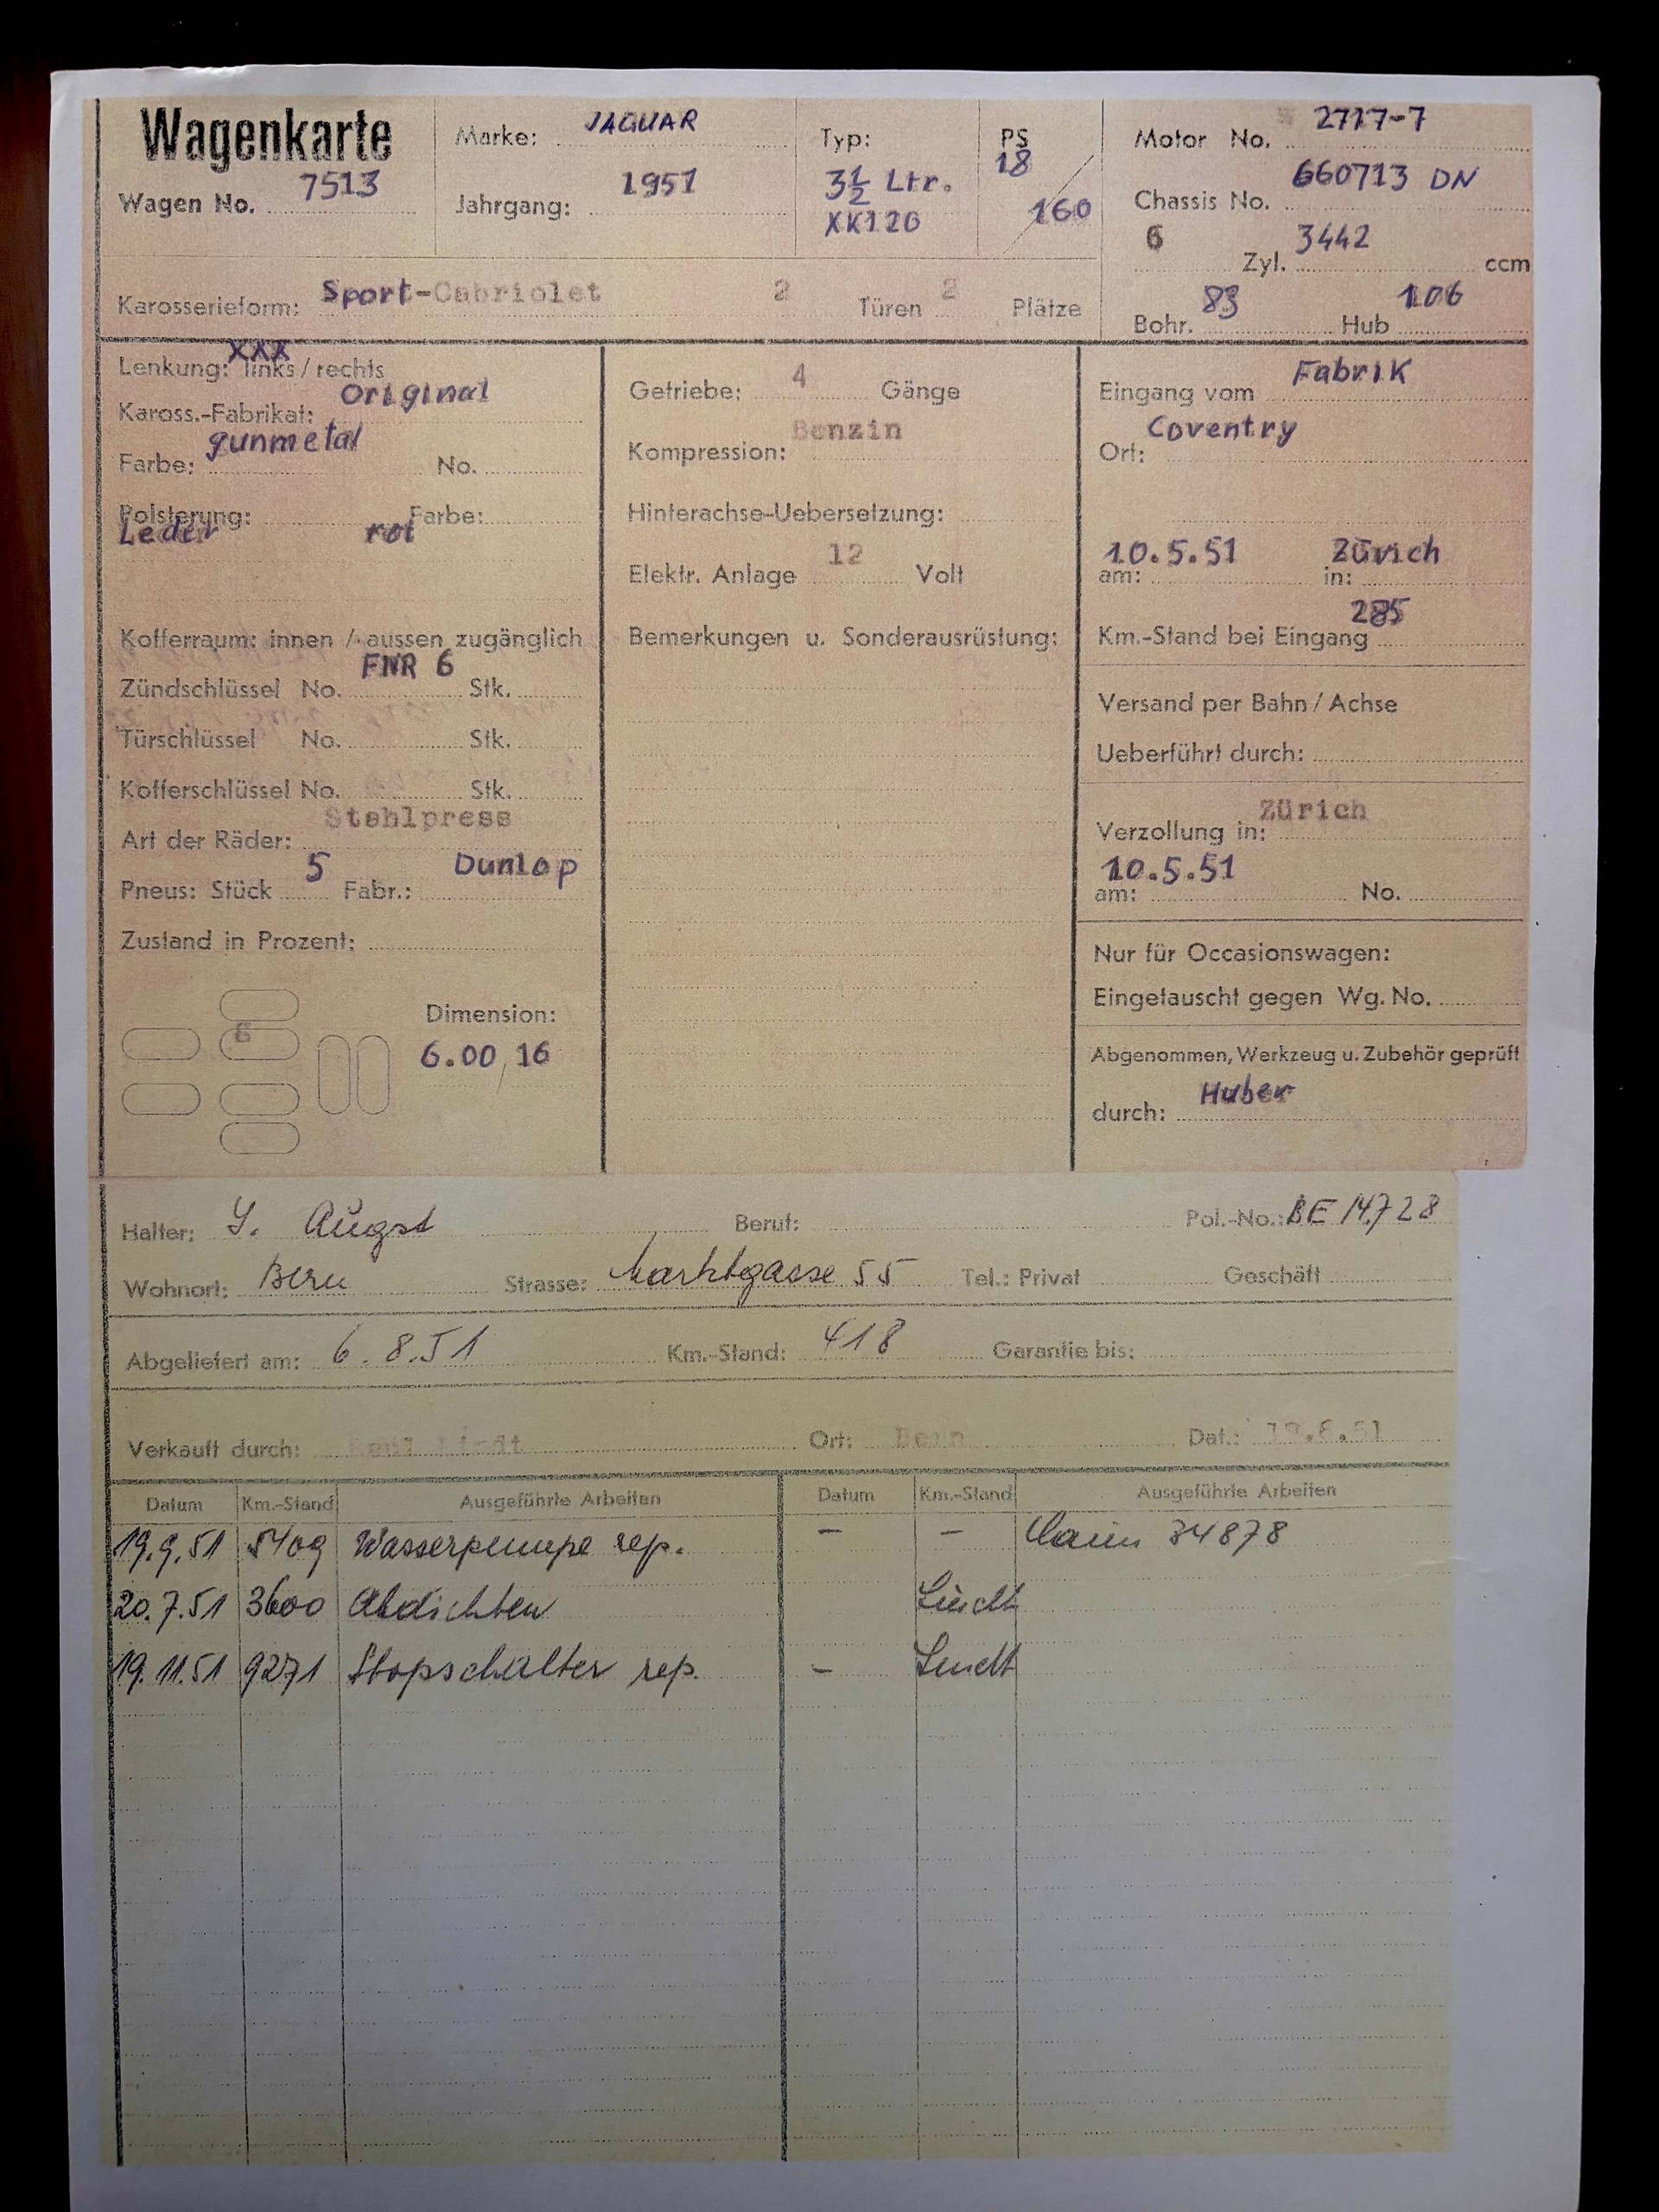 Wagenkarte
Wagen No. 7513
Marke: JAGUAR
Jahrgang: 1951
Typ: 3½ Ltr.
XK120
PS
18 / 160
Motor No. 2717-7
Chassis No. 660713 DN
6 Zyl. 3442 ccm
Bohr. 83 Hub 106
Karosserieform: Sport-Cabriolet 2 Türen 2 Plätze
Lenkung: links / rechts
xxx
Kaross.-Fabrikat: Original
Farbe: gunmetal No.
Polsterung: Leder Farbe: rot
Kofferraum: innen / aussen zugänglich
Zündschlüssel No. FNR 6 Stk.
Türschlüssel No. Stk.
Kofferschlüssel No. Stk.
Art der Räder: Stahlpress
Pneus: Stück 5 Fabr.: Dunlop
Zustand in Prozent:
6
Dimension:
6.00/16
Getriebe: 4 Gänge
Kompression: Benzin
Hinterachse-Uebersetzung:
Elektr. Anlage 12 Volt
Bemerkungen u. Sonderausrüstung:
Eingang vom Fabrik
Ort: Coventry
am: 10.5.51 in: Zürich
Km.-Stand bei Eingang 285
Versand per Bahn / Achse
Ueberführt durch:
Verzollung in: Zürich
am: 10.5.51 No.
Nur für Occasionswagen:
Eingetauscht gegen Wg. No.
Abgenommen, Werkzeug u. Zubehör geprüft
durch: Huber
Halter: Y. Augst Beruf: Pol.-No.: BE 14728
Wohnort: Bern Strasse: Marktgasse 55 Tel.: Privat Geschäft
Abgeliefert am: 6.8.51 Km.-Stand: 418 Garantie bis:
Verkauft durch: Ort: Bern Dat.:
Datum Km.-Stand Ausgeführte Arbeiten Datum Km.-Stand Ausgeführte Arbeiten
19.9.51 5409 Wasserpumpe rep. – – Claim 34878
20.7.51 3600 Abdichten Lindt
19.11.51 9271 Stopschalter rep. – Lindt